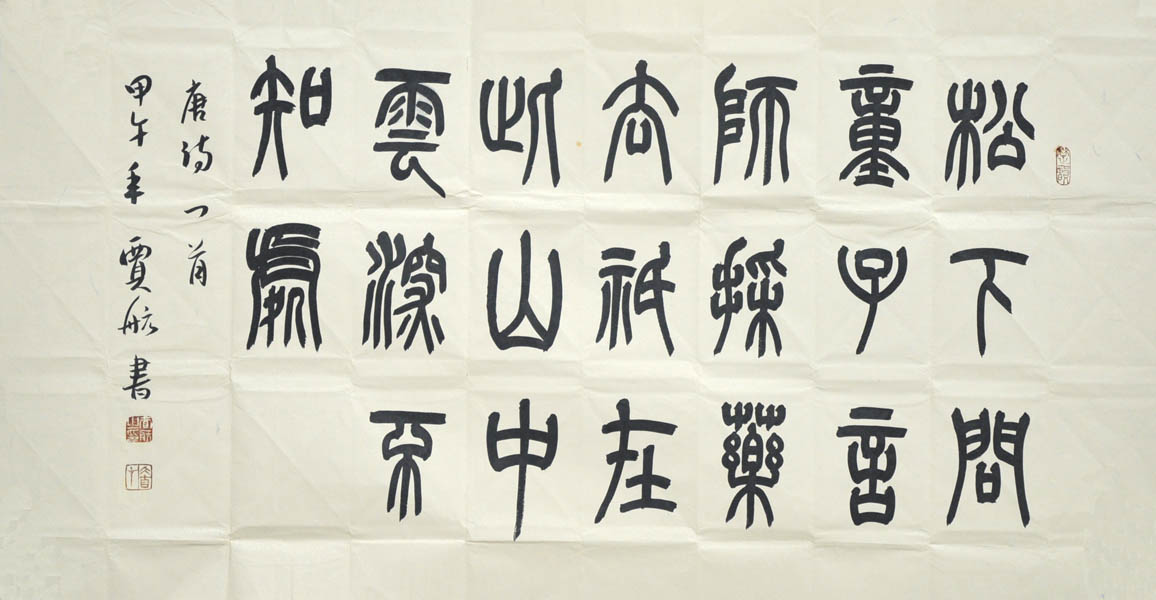 松下問
童子言
師採藥
去祇在
此山中
雲深不
知處
唐詩一首
甲午年賈航書